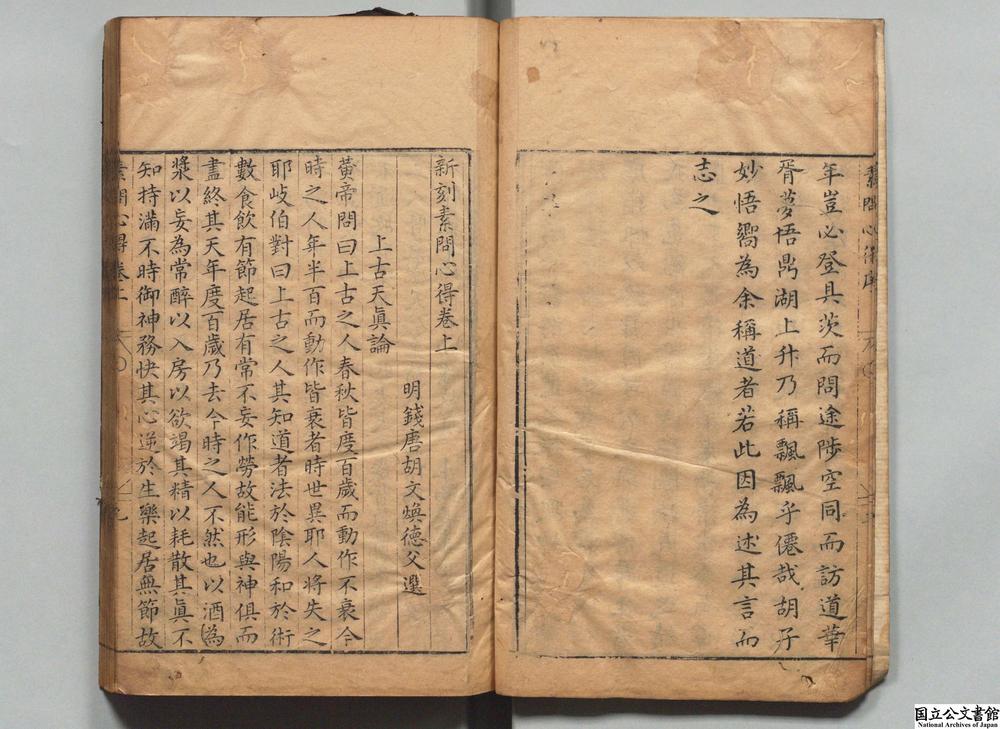 年豈必登具茨而問途陟空同而訪道華
胥夢悟鼎湖上升乃稱飄飄乎僊哉胡子
妙悟嚮為余稱道者若此因為述其言而
志之
新刻素問心得卷上
明錢唐胡文煥德父選
上古天眞論
黄帝問曰上古之人春秋皆度百歲而動作不衰今
時之人年半百而動作皆衰者時世異耶人將失之
耶岐伯對曰上古之人其知道者法於陰陽和於術
數食飲有節起居有常不妄作勞故能形與神俱而
盡終其天年度百歲乃去今時之人不然也以酒為
漿以妄為常醉以入房以欲竭其精以耗散其眞不
知持滿不時御神務快其心逆於生樂起居無節故
素問心得卷上
国立公文書館
National Archives of Japan